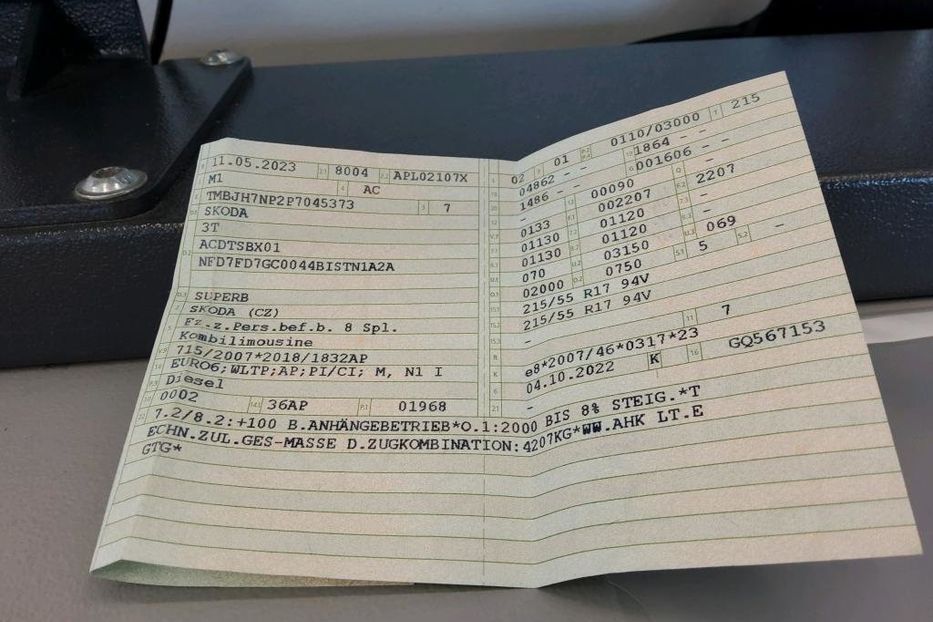 11.05.2023 8004 APL02107X
M1 AC
TMBJH7NP2P7045373 7
SKODA
3T
ACDTSBX01
NFD7FD7GC0044BISTN1A2A
SUPERB
SKODA (CZ)
Fz.z.Pers.bef.b. 8 Spl.
Kombilimousine
715/2007*2018/1832AP
EURO6;WLTP;AP;PI/CI; M, N1 I
Diesel
0002 36AP 01968
02 01 0110/03000 215
04862 - - 1864 - -
1486 - - 001606 - -
- 00090 2207
0133 002207 -
01130 01120 -
01130 01120 069 -
070 03150 5
02000 0750
215/55 R17 94V
215/55 R17 94V
-
7
e8*2007/46*0317*23
04.10.2022 K GQ567153
-
7.2/8.2:+100 B.ANHÄNGEBETRIEB*O.1:2000 BIS 8% STEIG.*T
ECHN.ZUL.GES-MASSE D.ZUGKOMBINATION:4207KG*WW.AHK LT.E
GTG*